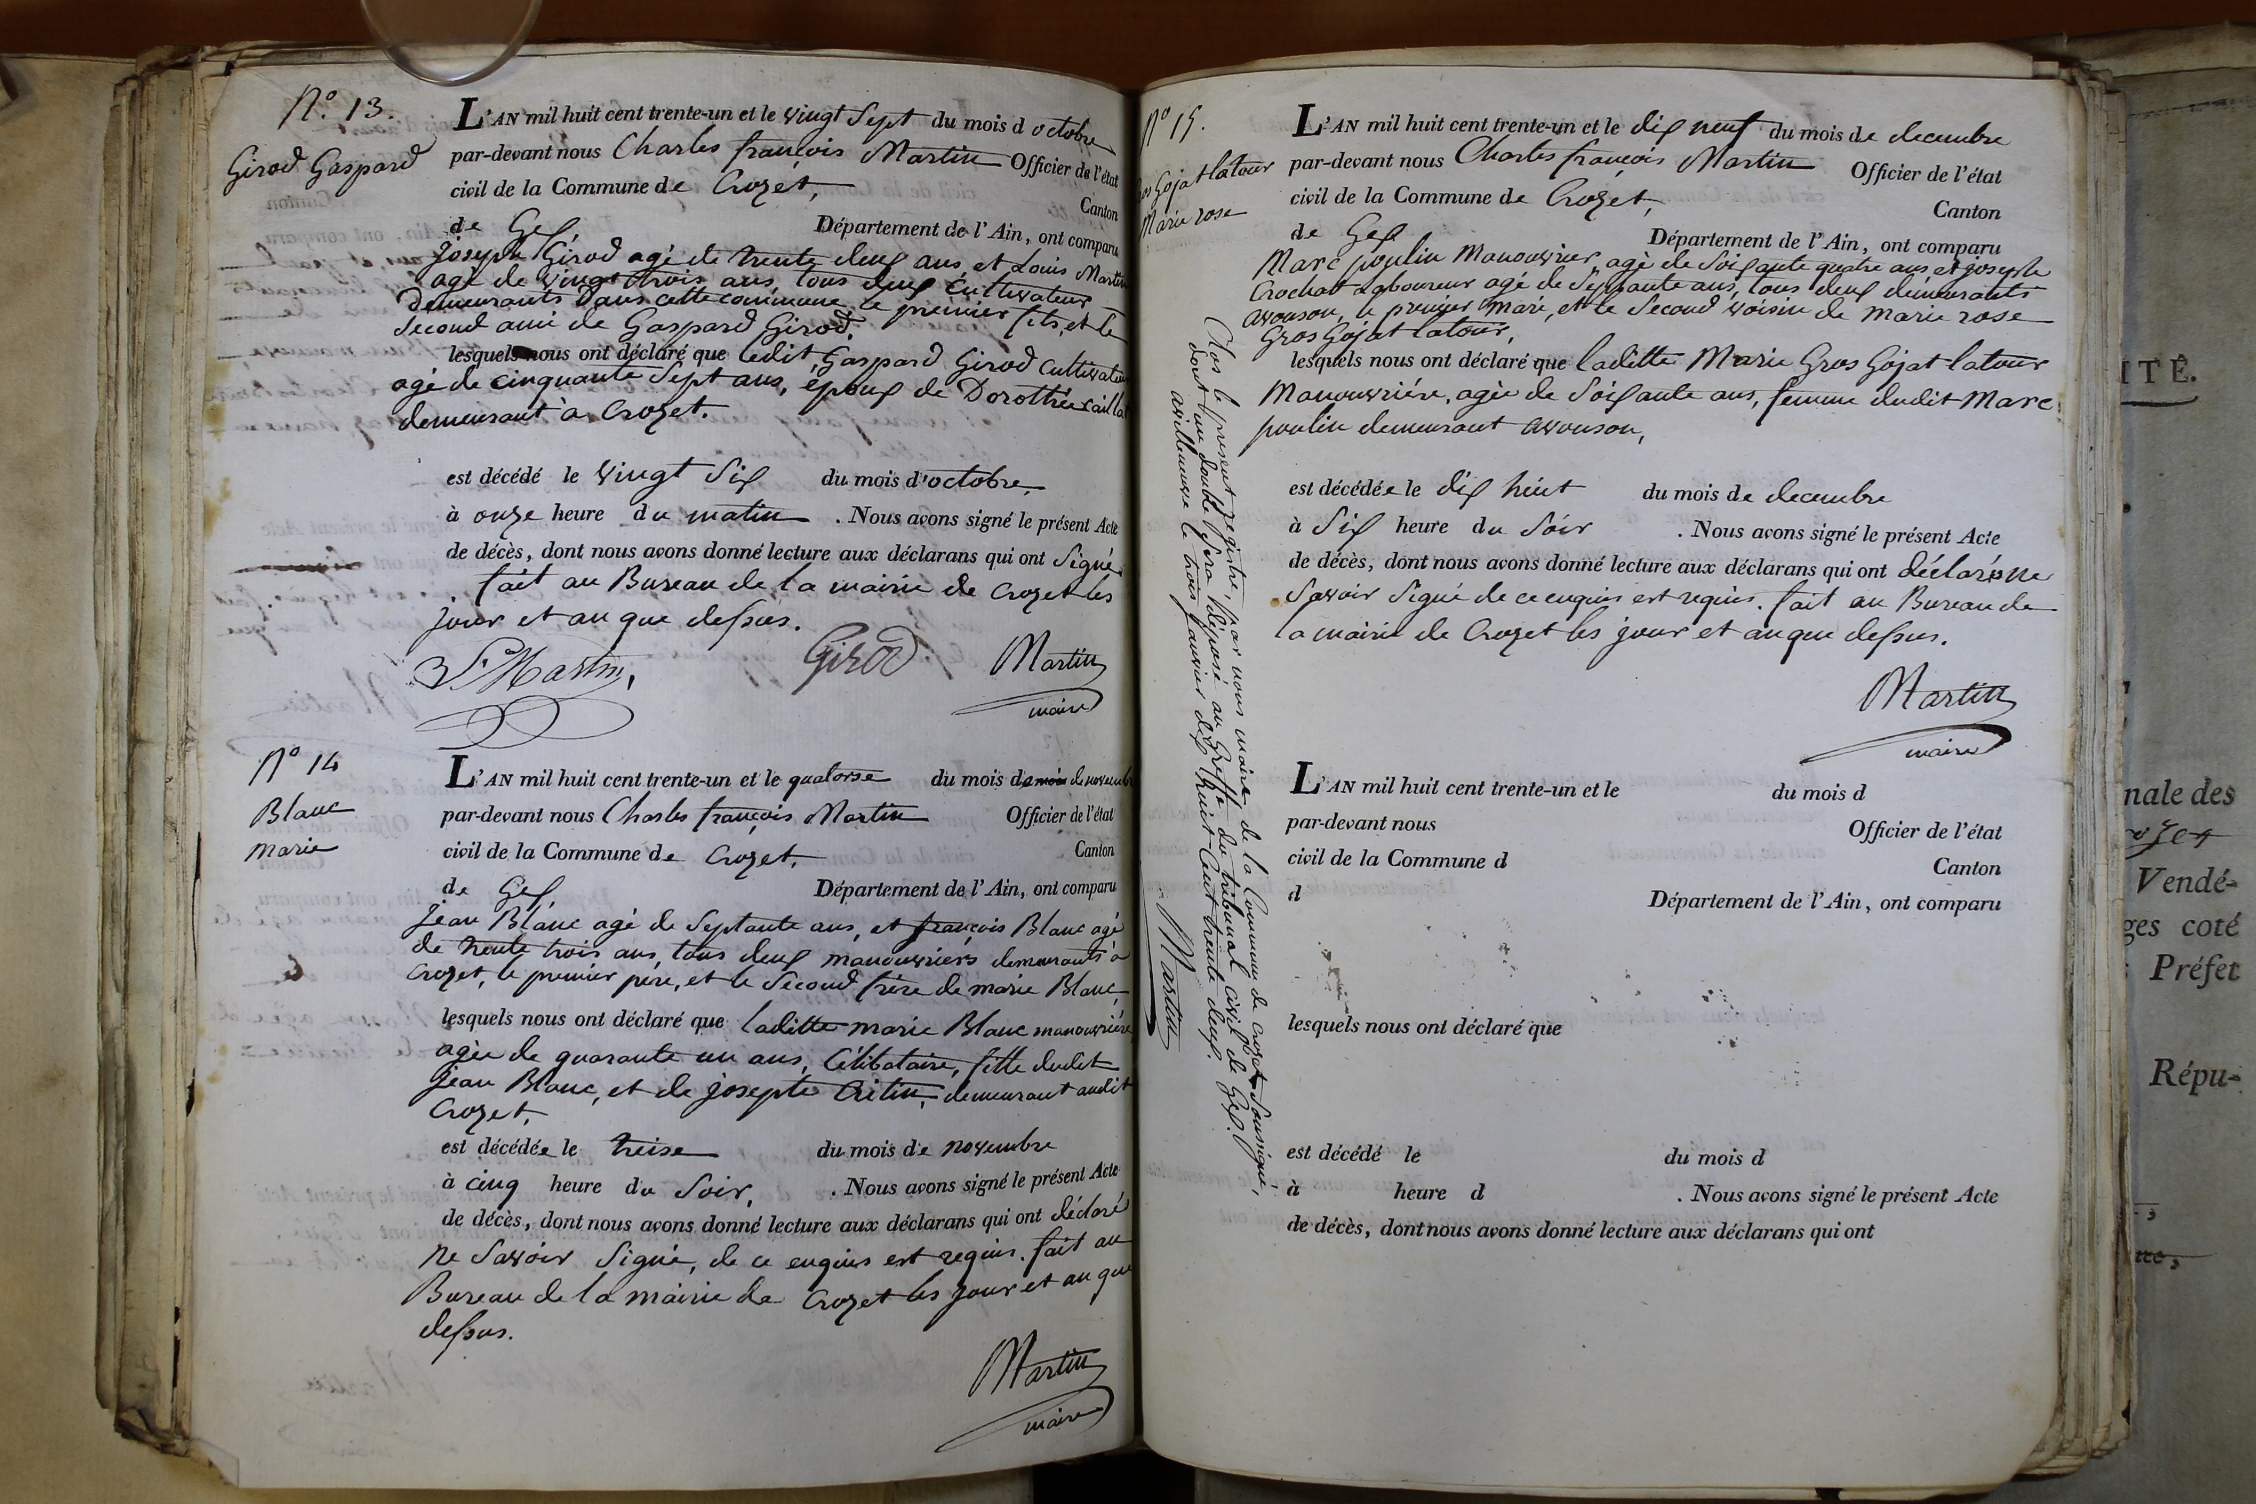 N.° 13.
Girod Gaspard
L'AN mil huit cent trente-un et le vingt Sept du mois d octobre
par-devant nous Charles françois Martin Officier de l'état
civil de la Commune de Crozet, Canton
de Gex Département de l'Ain, ont comparu
joseph Girod agé de trente deux ans, et Louis Martin
agé de vingt trois ans, tous deux Cultivateurs
demeurants dans cette commune le premier fils, et le
Second ami de Gaspard Girod.
lesquels nous ont déclaré que ledit Gaspard Girod Cultivateur
agé de cinquante Sept ans, époux de Dorothée
demeurant à Crozet.
est décédé le vingt Six du mois d'octobre,
à onze heure du matin . Nous avons signé le présent Acte
de décès, dont nous avons donné lecture aux déclarans qui ont Signé
fait au Bureau de la mairie de Crozet les
jour et an que dessus.
Martin, Girod Martin
maire
N° 14
Blanc
marie
L'AN mil huit cent trente-un et le quatorse du mois de mois de novembre
par-devant nous Charles françois Martin Officier de l'état
civil de la Commune de Crozet, Canton
de Gex Département de l'Ain, ont comparu
jean Blanc agé de Septante ans, et françois Blanc agé
de trente trois ans, tous deux manouvriers demeurants à
Crozet, le premier père, et le Second frère de marie Blanc,
lesquels nous ont déclaré que laditte marie Blanc manouvrière
agée de quarante un ans, Célibataire, fille dudit
jean Blanc, et de josephte Critin, demeurant audit
Crozet,
est décédée le treise du mois de novembre
à cinq heure du Soir, . Nous avons signé le présent Acte
de décès, dont nous avons donné lecture aux déclarans qui ont déclaré
ne Savoir Signé, de ce enquis est requis. fait au
Bureau de la mairie de Crozet les jour et an que
dessus.
Martin
maire
N° 15.
Gros Gojat latour
Marie rose
L'AN mil huit cent trente-un et le dix neuf du mois de decembre
par-devant nous Charles françois Martin Officier de l'état
civil de la Commune de Crozet, Canton
de Gex Département de l'Ain, ont comparu
Marc poulin Manouvrier, agé de Soixante quatre ans, et joseph
Crochat Laboureur agé de Septante ans, tous deux démeurants
avouson, le premier mari, et le Second voisin de marie rose
Gros Gojat latour,
lesquels nous ont déclaré que laditte Marie Gros Gojat latour
Manouvrière, agée de Soixante ans, femme dudit Marc
poulin demeurant avouson,
est décédée le dix huit du mois de decembre
à Six heure du Soir . Nous avons signé le présent Acte
de décès, dont nous avons donné lecture aux déclarans qui ont déclaré ne
Savoir Signé de ce enquis est requis. fait au Bureau de
la mairie de Crozet les jour et an que dessus.
Martin
maire
Clos le present registre, par nous maire de la Commune de crozet Soussigné,
dont une double Sera déposé au Greffe du tribunal civil de Gex.
avilleneuve le trois janvier dix huit Cent trente deux.
Martin
L'AN mil huit cent trente-un et le du mois d
par-devant nous Officier de l'état
civil de la Commune d Canton
d Département de l'Ain, ont comparu
lesquels nous ont déclaré que
est décédé le du mois d
à heure d . Nous avons signé le présent Acte
de décès, dont nous avons donné lecture aux déclarans qui ont
ITÉ.
nale des
Vendé-
ges coté
Préfet
Répu-